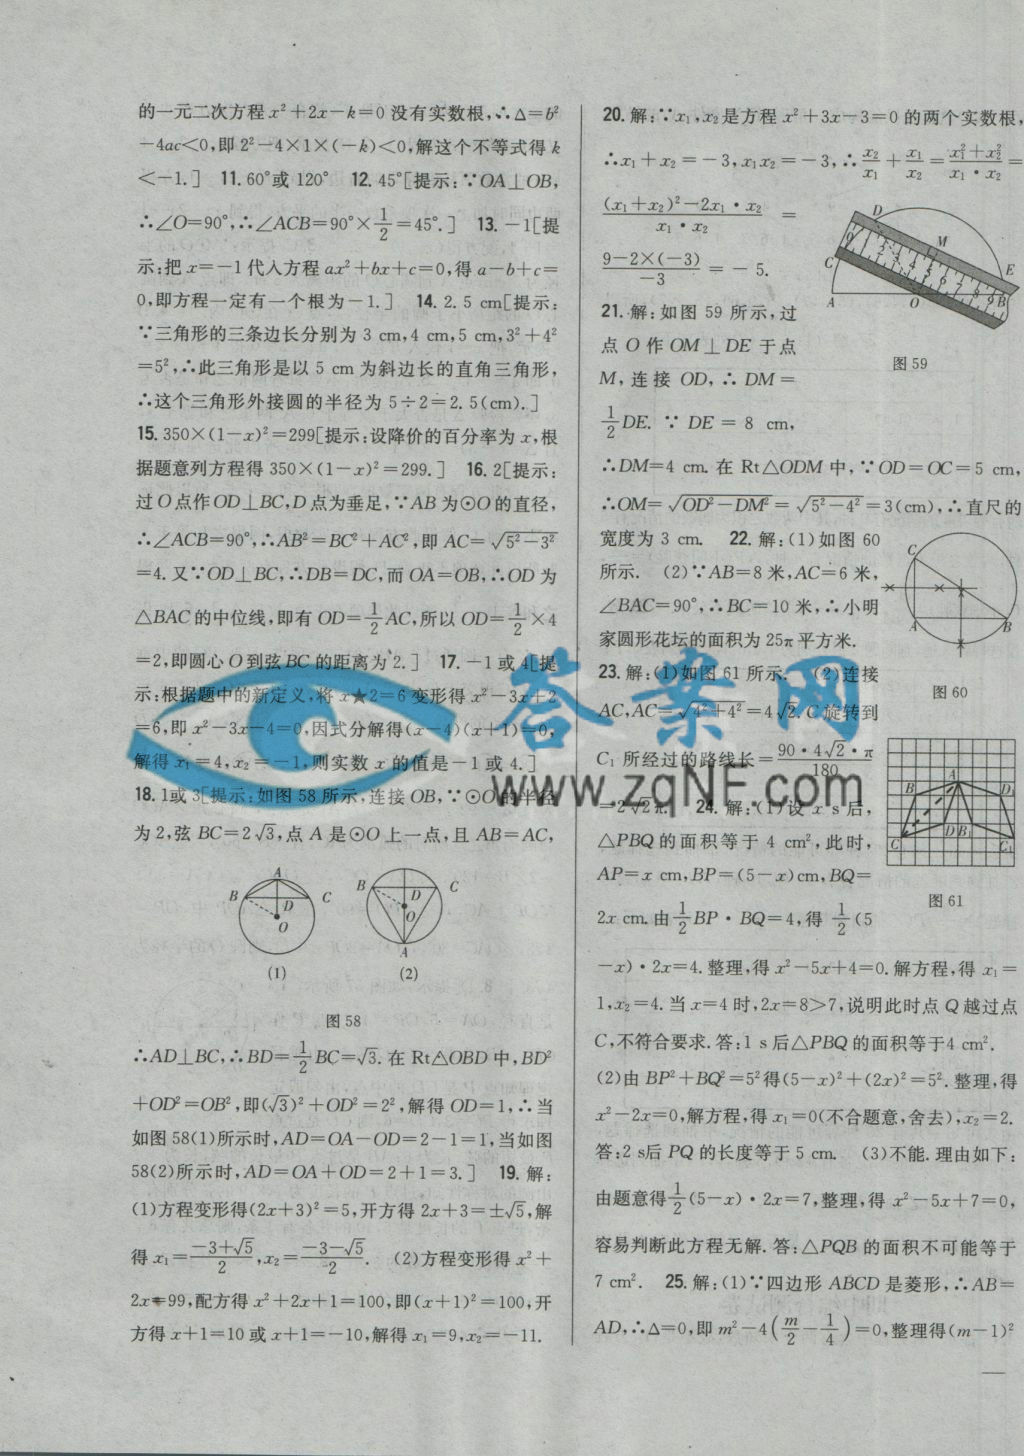 的一元二次方程 x²+2x-k=0 没有实数根,∴Δ=b²
-4ac<0,即 2²-4×1×(-k)<0,解这个不等式得 k
<-1.] 11. 60°或 120° 12. 45°[提示:∵OA⊥OB,
∴∠O=90°,∴∠ACB=90°×1/2=45°.] 13. -1[提
示:把 x=-1 代入方程 ax²+bx+c=0,得 a-b+c=
0,即方程一定有一个根为-1.] 14. 2.5 cm[提示:
∵三角形的三条边长分别为 3 cm,4 cm,5 cm,3²+4²
=5²,∴此三角形是以 5 cm 为斜边长的直角三角形,
∴这个三角形外接圆的半径为 5÷2=2.5(cm).]
15. 350×(1-x)²=299[提示:设降价的百分率为 x,根
据题意列方程得 350×(1-x)²=299.] 16. 2[提示:
过 O 点作 OD⊥BC,D 点为垂足,∵AB 为⊙O 的直径,
∴∠ACB=90°,∴AB²=BC²+AC²,即 AC=√(5²-3²)
=4. 又∵OD⊥BC,∴DB=DC,而 OA=OB,∴OD 为
△BAC 的中位线,即有 OD=1/2AC,所以 OD=1/2×4
=2,即圆心 O 到弦 BC 的距离为 2.] 17. -1 或 4[提
示:根据题中的新定义,将 x★2=6 变形得 x²-3x+2
=6,即 x²-3x-4=0,因式分解得(x-4)(x+1)=0,
解得 x₁=4,x₂=-1,则实数 x 的值是-1 或 4.]
18. 1或 3[提示:如图 58 所示,连接 OB,∵⊙O 的半径
为 2,弦 BC=2√3,点 A 是⊙O 上一点,且 AB=AC,
A B D C O
(1)
B D C O A
(2)
图 58
∴AD⊥BC,∴BD=1/2BC=√3. 在 Rt△OBD 中,BD²
+OD²=OB²,即(√3)²+OD²=2²,解得 OD=1,∴当
如图 58(1)所示时,AD=OA-OD=2-1=1,当如图
58(2)所示时,AD=OA+OD=2+1=3.] 19. 解:
(1)方程变形得(2x+3)²=5,开方得 2x+3=±√5,解
得 x₁=(-3+√5)/2,x₂=(-3-√5)/2. (2)方程变形得 x²+
2x=99,配方得 x²+2x+1=100,即(x+1)²=100,开
方得 x+1=10 或 x+1=-10,解得 x₁=9,x₂=-11.
20. 解:∵x₁,x₂是方程 x²+3x-3=0 的两个实数根,
∴x₁+x₂=-3,x₁x₂=-3,∴x₂/x₁+x₁/x₂=(x₁²+x₂²)/(x₁·x₂)=
((x₁+x₂)²-2x₁·x₂)/(x₁·x₂) =
(9-2×(-3))/(-3) = -5.
21. 解:如图 59 所示,过
点 O 作 OM⊥DE 于点
M,连接 OD,∴DM=
1/2DE. ∵ DE=8 cm,
D M E C A O B
图 59
∴DM=4 cm. 在 Rt△ODM 中,∵OD=OC=5 cm,
∴OM=√(OD²-DM²)=√(5²-4²)=3(cm),∴直尺的
宽度为 3 cm. 22. 解:(1)如图 60
所示. (2)∵AB=8 米,AC=6 米,
∠BAC=90°,∴BC=10 米,∴小明
家圆形花坛的面积为 25π 平方米.
C A B
图 60
23. 解:(1)如图 61 所示. (2)连接
AC,AC=√(4²+4²)=4√2. C 旋转到
C₁ 所经过的路线长=(90·4√2·π)/180
=2√2π. 24. 解:(1)设 x s 后,
△PBQ 的面积等于 4 cm²,此时,
AP=x cm,BP=(5-x)cm,BQ=
2x cm. 由1/2BP·BQ=4,得 1/2(5
A B D₁ C D B₁ C₁
图 61
-x)·2x=4. 整理,得 x²-5x+4=0. 解方程,得 x₁=
1,x₂=4. 当 x=4 时,2x=8>7,说明此时点 Q 越过点
C,不符合要求. 答:1 s 后△PBQ 的面积等于4 cm².
(2)由 BP²+BQ²=5²得(5-x)²+(2x)²=5². 整理,得
x²-2x=0,解方程,得 x₁=0(不合题意,舍去),x₂=2.
答:2 s后 PQ 的长度等于 5 cm. (3)不能. 理由如下:
由题意得1/2(5-x)·2x=7,整理,得 x²-5x+7=0,
容易判断此方程无解. 答:△PQB 的面积不可能等于
7 cm². 25. 解:(1)∵四边形 ABCD 是菱形,∴AB=
AD,∴Δ=0,即 m²-4(m/2-1/4)=0,整理得(m-1)²
答案网
www.zqNF.com